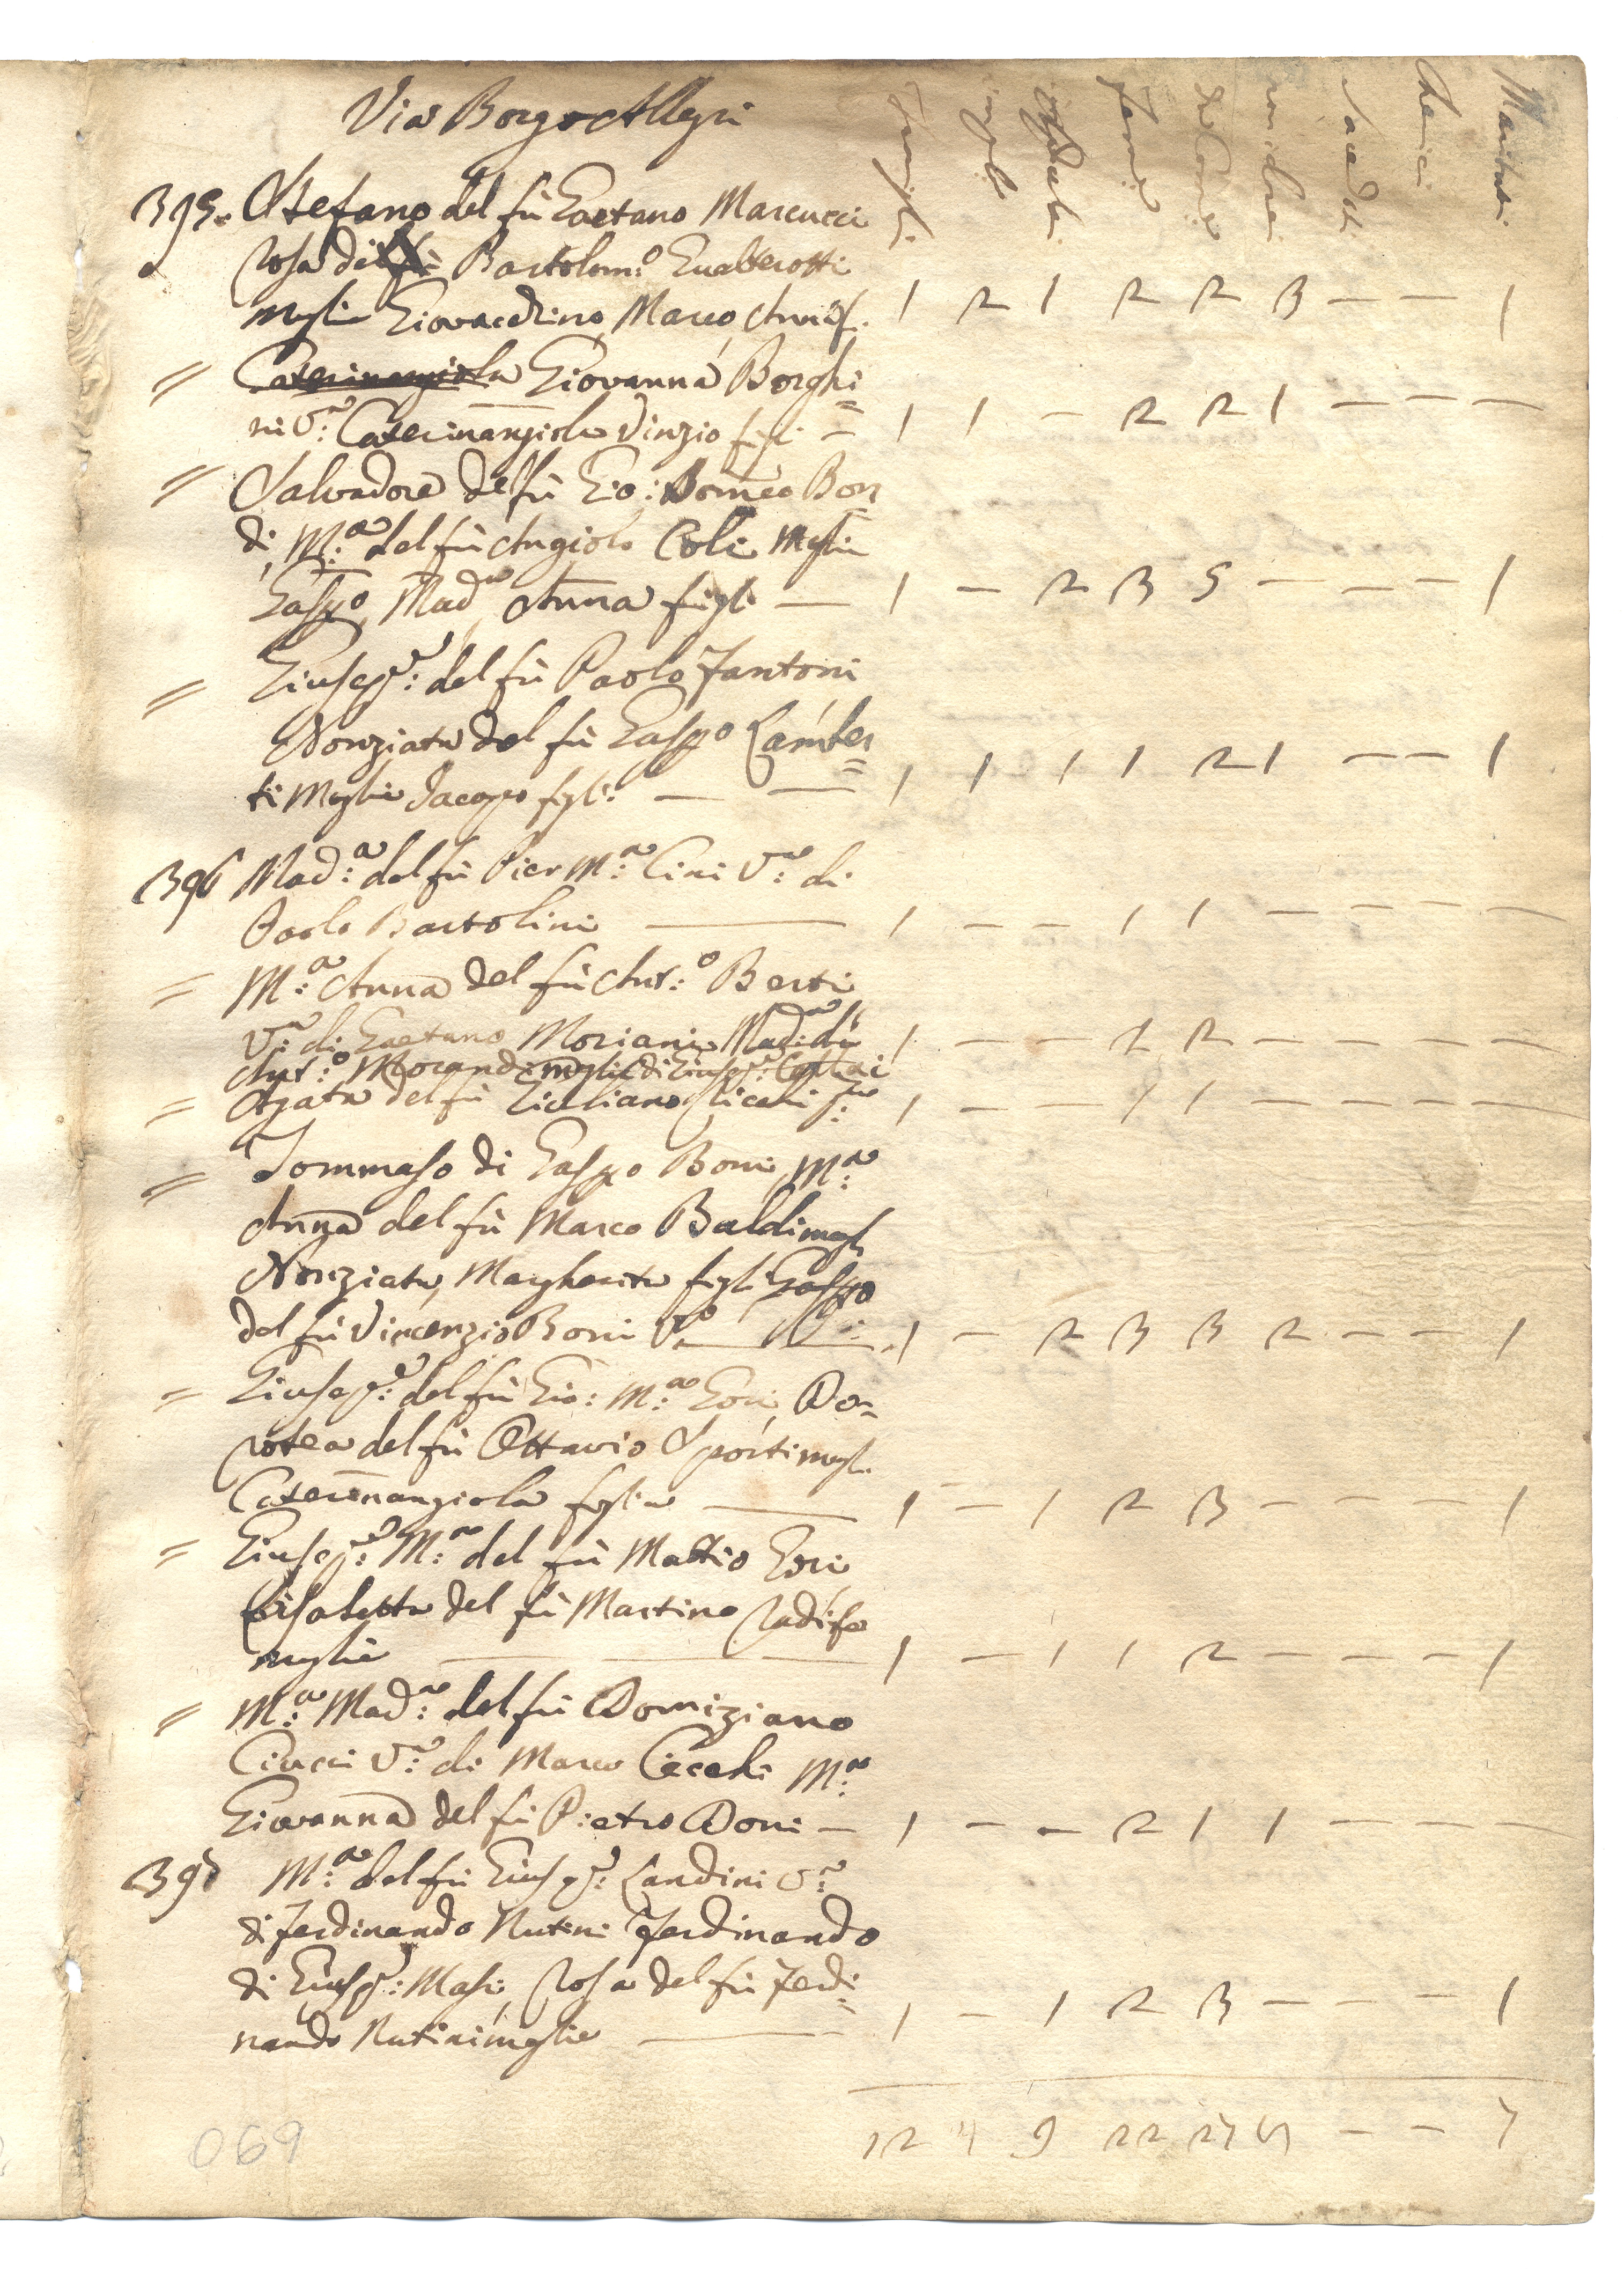 Via Borgo Allegri
Famigli. ingli Maritati
395. Stefano del fù Gaetano Marcucci
Rosa di Bartolom:º Gualterotti
moglie Giovacchino, Marco, Anna f. 1 2 1 2 2 3 — — 1
= Caterinangiola Giovanna Borghi=
ni V:ª Caterinangiola Vinzio figli — 1 1 — 2 2 1 — — —
= Salvadore del fù Gio: Domeco Bon=
di, M:ª del fù Angiolo Coli moglie
Gaspo, Madª Anna figli — 1 — 2 3 5 — — — 1
= Giusepe: del fù Paolo Fantoni
Nonziata del fù Gaspo Lamber=
ti moglie Jacopo figli: — — 1 1 1 1 2 1 — — 1
396 Mad:ª del fù Pier M:ª Cini V:ª di
Paolo Bartolini — 1 — — 1 1 — — — —
= M:ª Anna del fù Ant:º Berti
V:ª di Gaetano Moriani, Mad:ª di 1 — — 2 2 — — — —
Ant:º Morandi moglie di Giuspe:
= Agata del fù Giuliano Ricchi 1 — — 1 1 — — — —
= Tommaso di Gaspo Boni, M:ª
Anna del fù Marco Baldi mogl
Nonziata, Margherita figli Gaspo
del fù Vincenzio Boni Vº — 1 — 2 3 3 2 — — 1
= Giusepe: del fù Gio: M:ª Gori, Do=
rotea del fù Ottavio Sporti mogl.
Caterinangiola figlia — 1 — 1 2 3 — — — 1
= Giusepe: M:ª del fù Mattio Gori
Lisabetta del fù Martino Radi
moglie — — — 1 — 1 1 2 — — — 1
= M:ª Mad:ª del fù Domiziano
Ciucci V:ª di Marco Cecchi M:ª
Giovanna del fù Pietro Doni — 1 — — 2 1 1 — — —
397 M:ª del fù Giuspe: Landini V:ª
di Ferdinando Nutini Ferdinando
di Giuspe: Masi, Rosa del fù Ferdi=
nando Nutini moglie — 1 — 1 2 3 — — — 1
12 4 9 22 27 — — 7
069